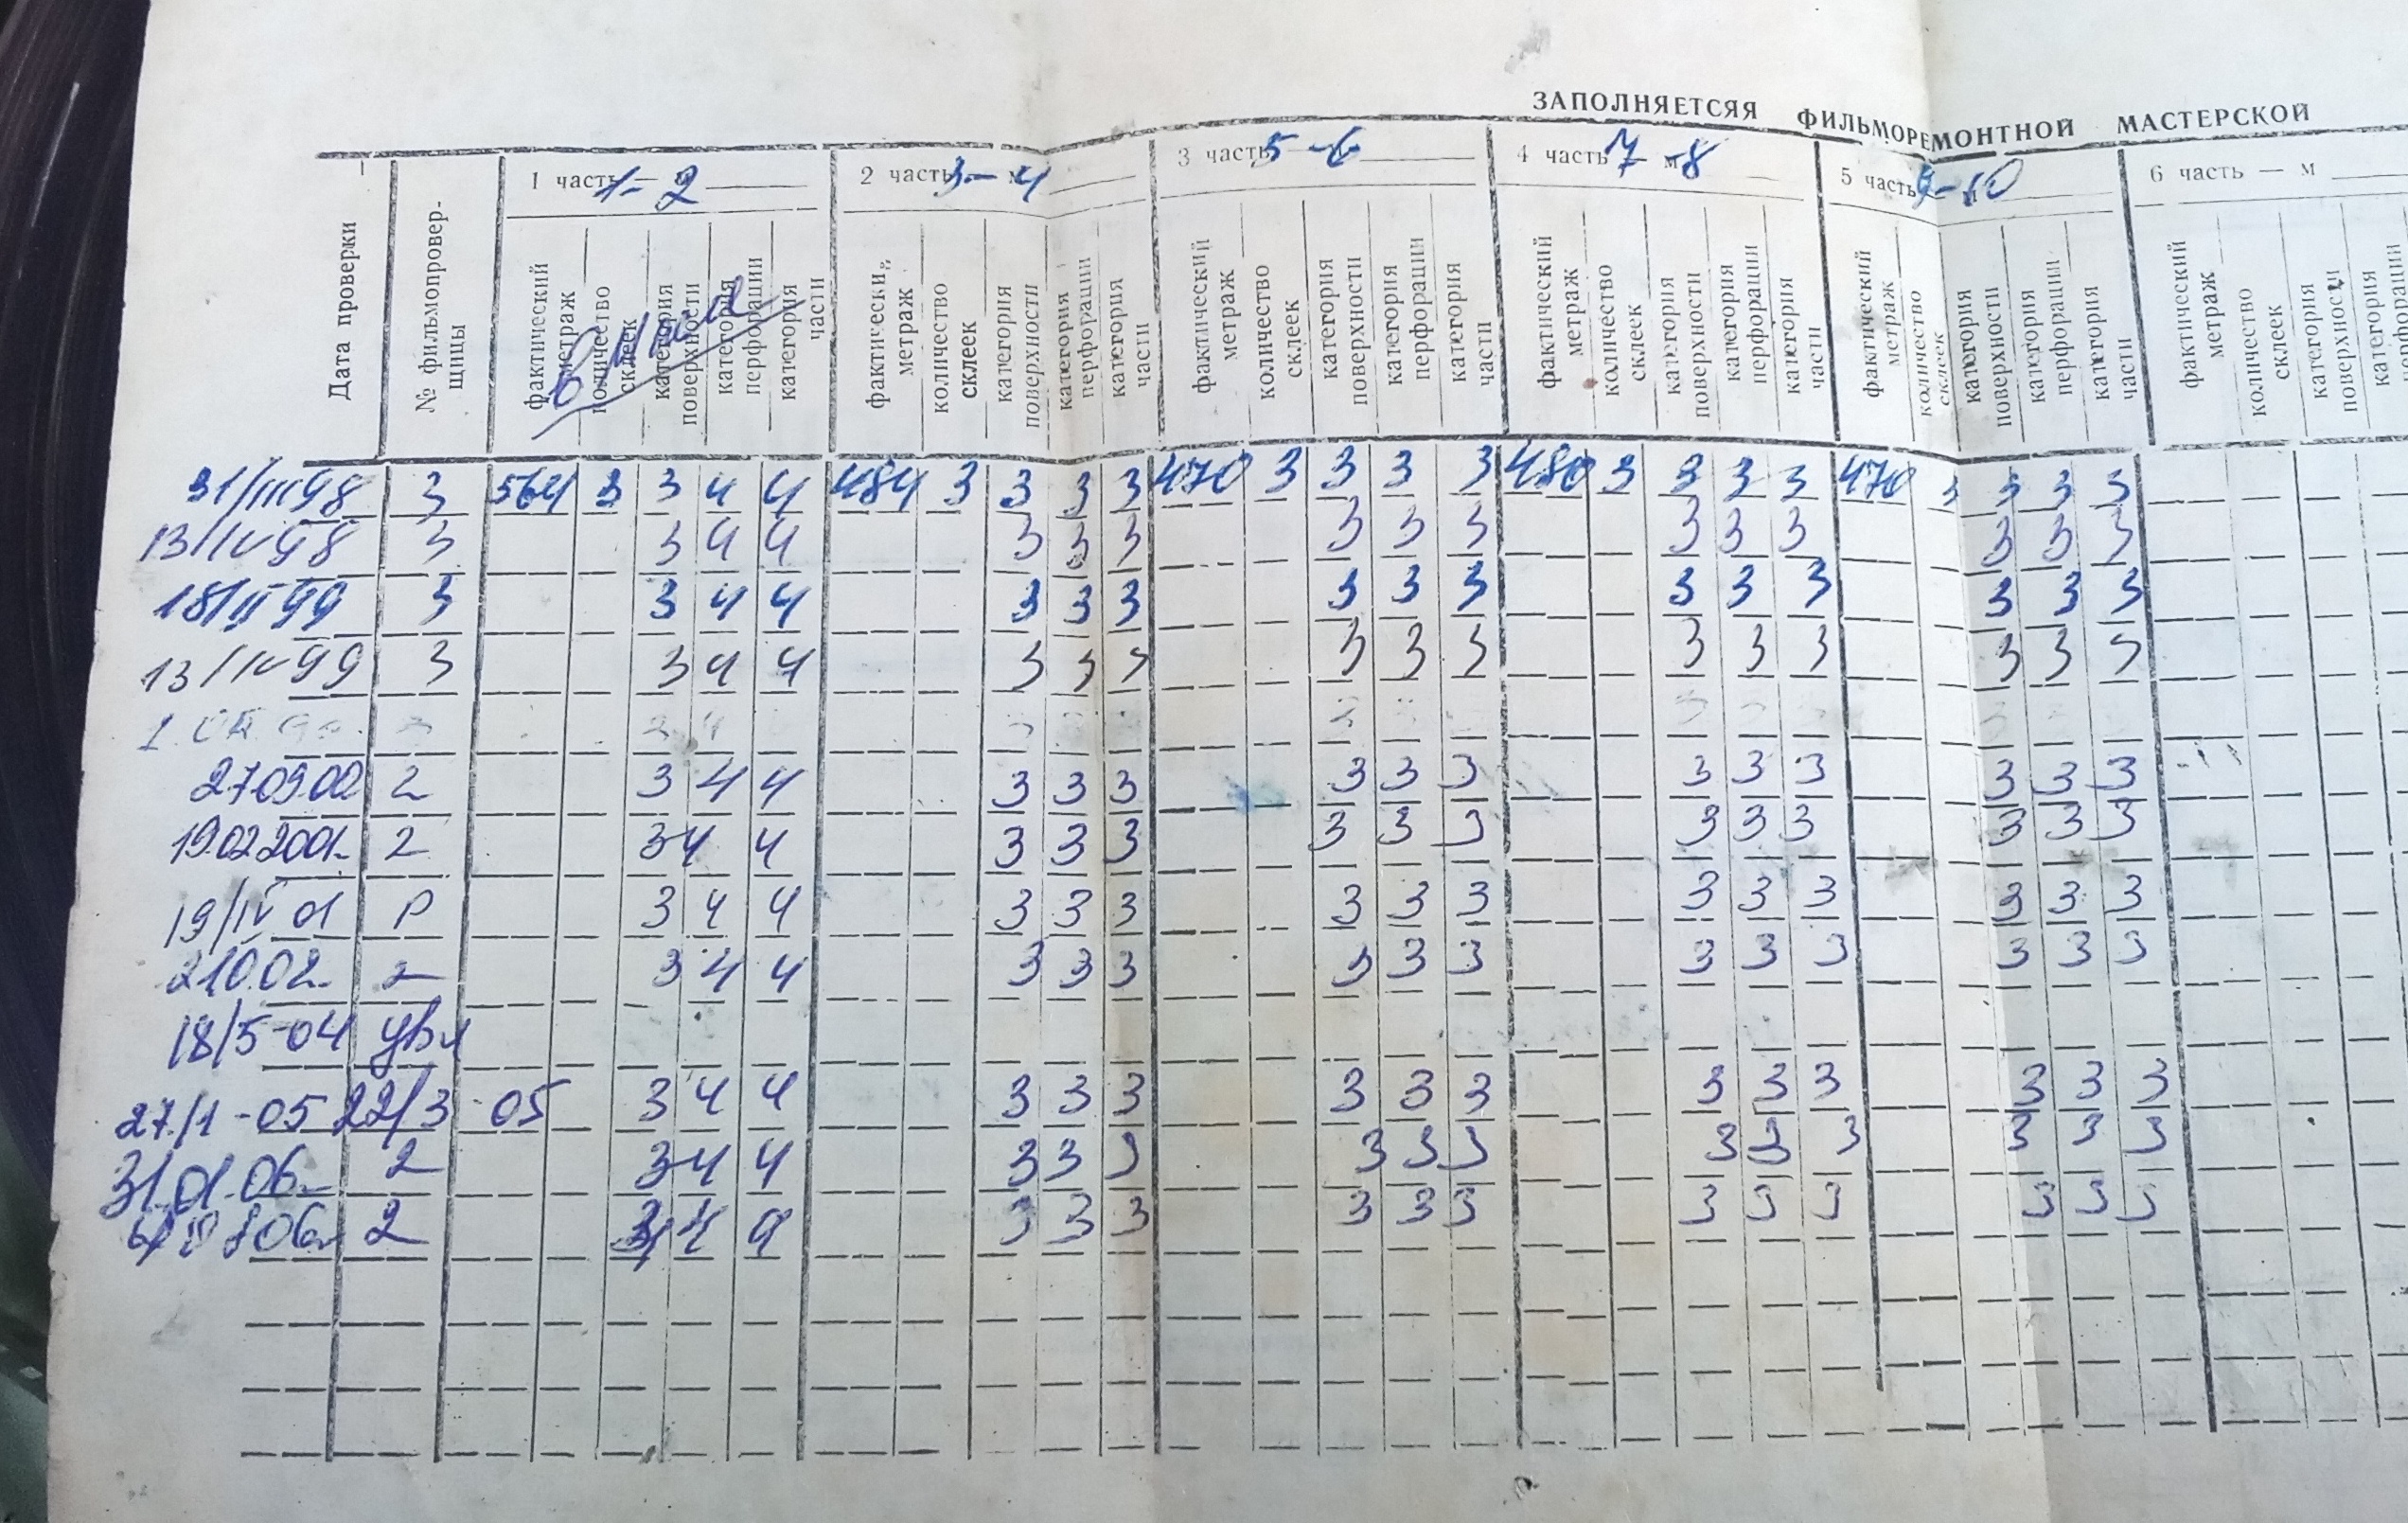 ЗАПОЛНЯЕТСЯЯ ФИЛЬМОРЕМОНТНОЙ МАСТЕРСКОЙ
Дата проверки
№ фильмопровер-
щицы
1 часть 1-2
2 часть 3-4
3 часть 5-6
4 часть 7-м8
5 часть 9-10
6 часть — м
фактический метраж
количество склеек
категория поверхности
категория перфорации
категория части
фактический метраж
количество склеек
категория поверхности
категория перфорации
категория части
фактический метраж
количество склеек
категория поверхности
категория перфорации
категория части
фактический метраж
количество склеек
категория поверхности
категория перфорации
категория части
фактический метраж
количество склеек
категория поверхности
категория перфорации
категория части
фактический метраж
количество склеек
категория поверхности
категория
31/III 98 3 564 3 3 4 4 484 3 3 3 3 470 3 3 3 3 480 3 3 3 3 470 3 3 3 3
13/IV 98 3 3 4 4 3 3 3 3 3 3 3 3 3 3 3 3
18/II 99 3 3 4 4 3 3 3 3 3 3 3 3 3 3 3 3
13/IV 99 3 3 4 4 3 3 3 3 3 3 3 3 3 3 3 3
27.09.00 2 3 4 4 3 3 3 3 3 3 3 3 3 3 3 3
19.02 2001. 2 3 4 4 3 3 3 3 3 3 3 3 3 3 3 3
19/IV 01 Р 3 4 4 3 3 3 3 3 3 3 3 3 3 3 3
2.10.02. 2 3 4 4 3 3 3 3 3 3 3 3 3 3 3 3
18/5-04 увл
27/1-05 22/3-05 3 4 4 3 3 3 3 3 3 3 3 3 3 3 3
31.01.06. 2 3 4 4 3 3 3 3 3 3 3 3 3 3 3 3
06. 2 3 4 4 3 3 3 3 3 3 3 3 3 3 3 3